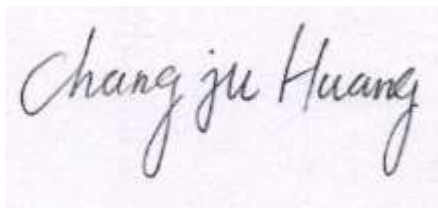 Chang ju Huang